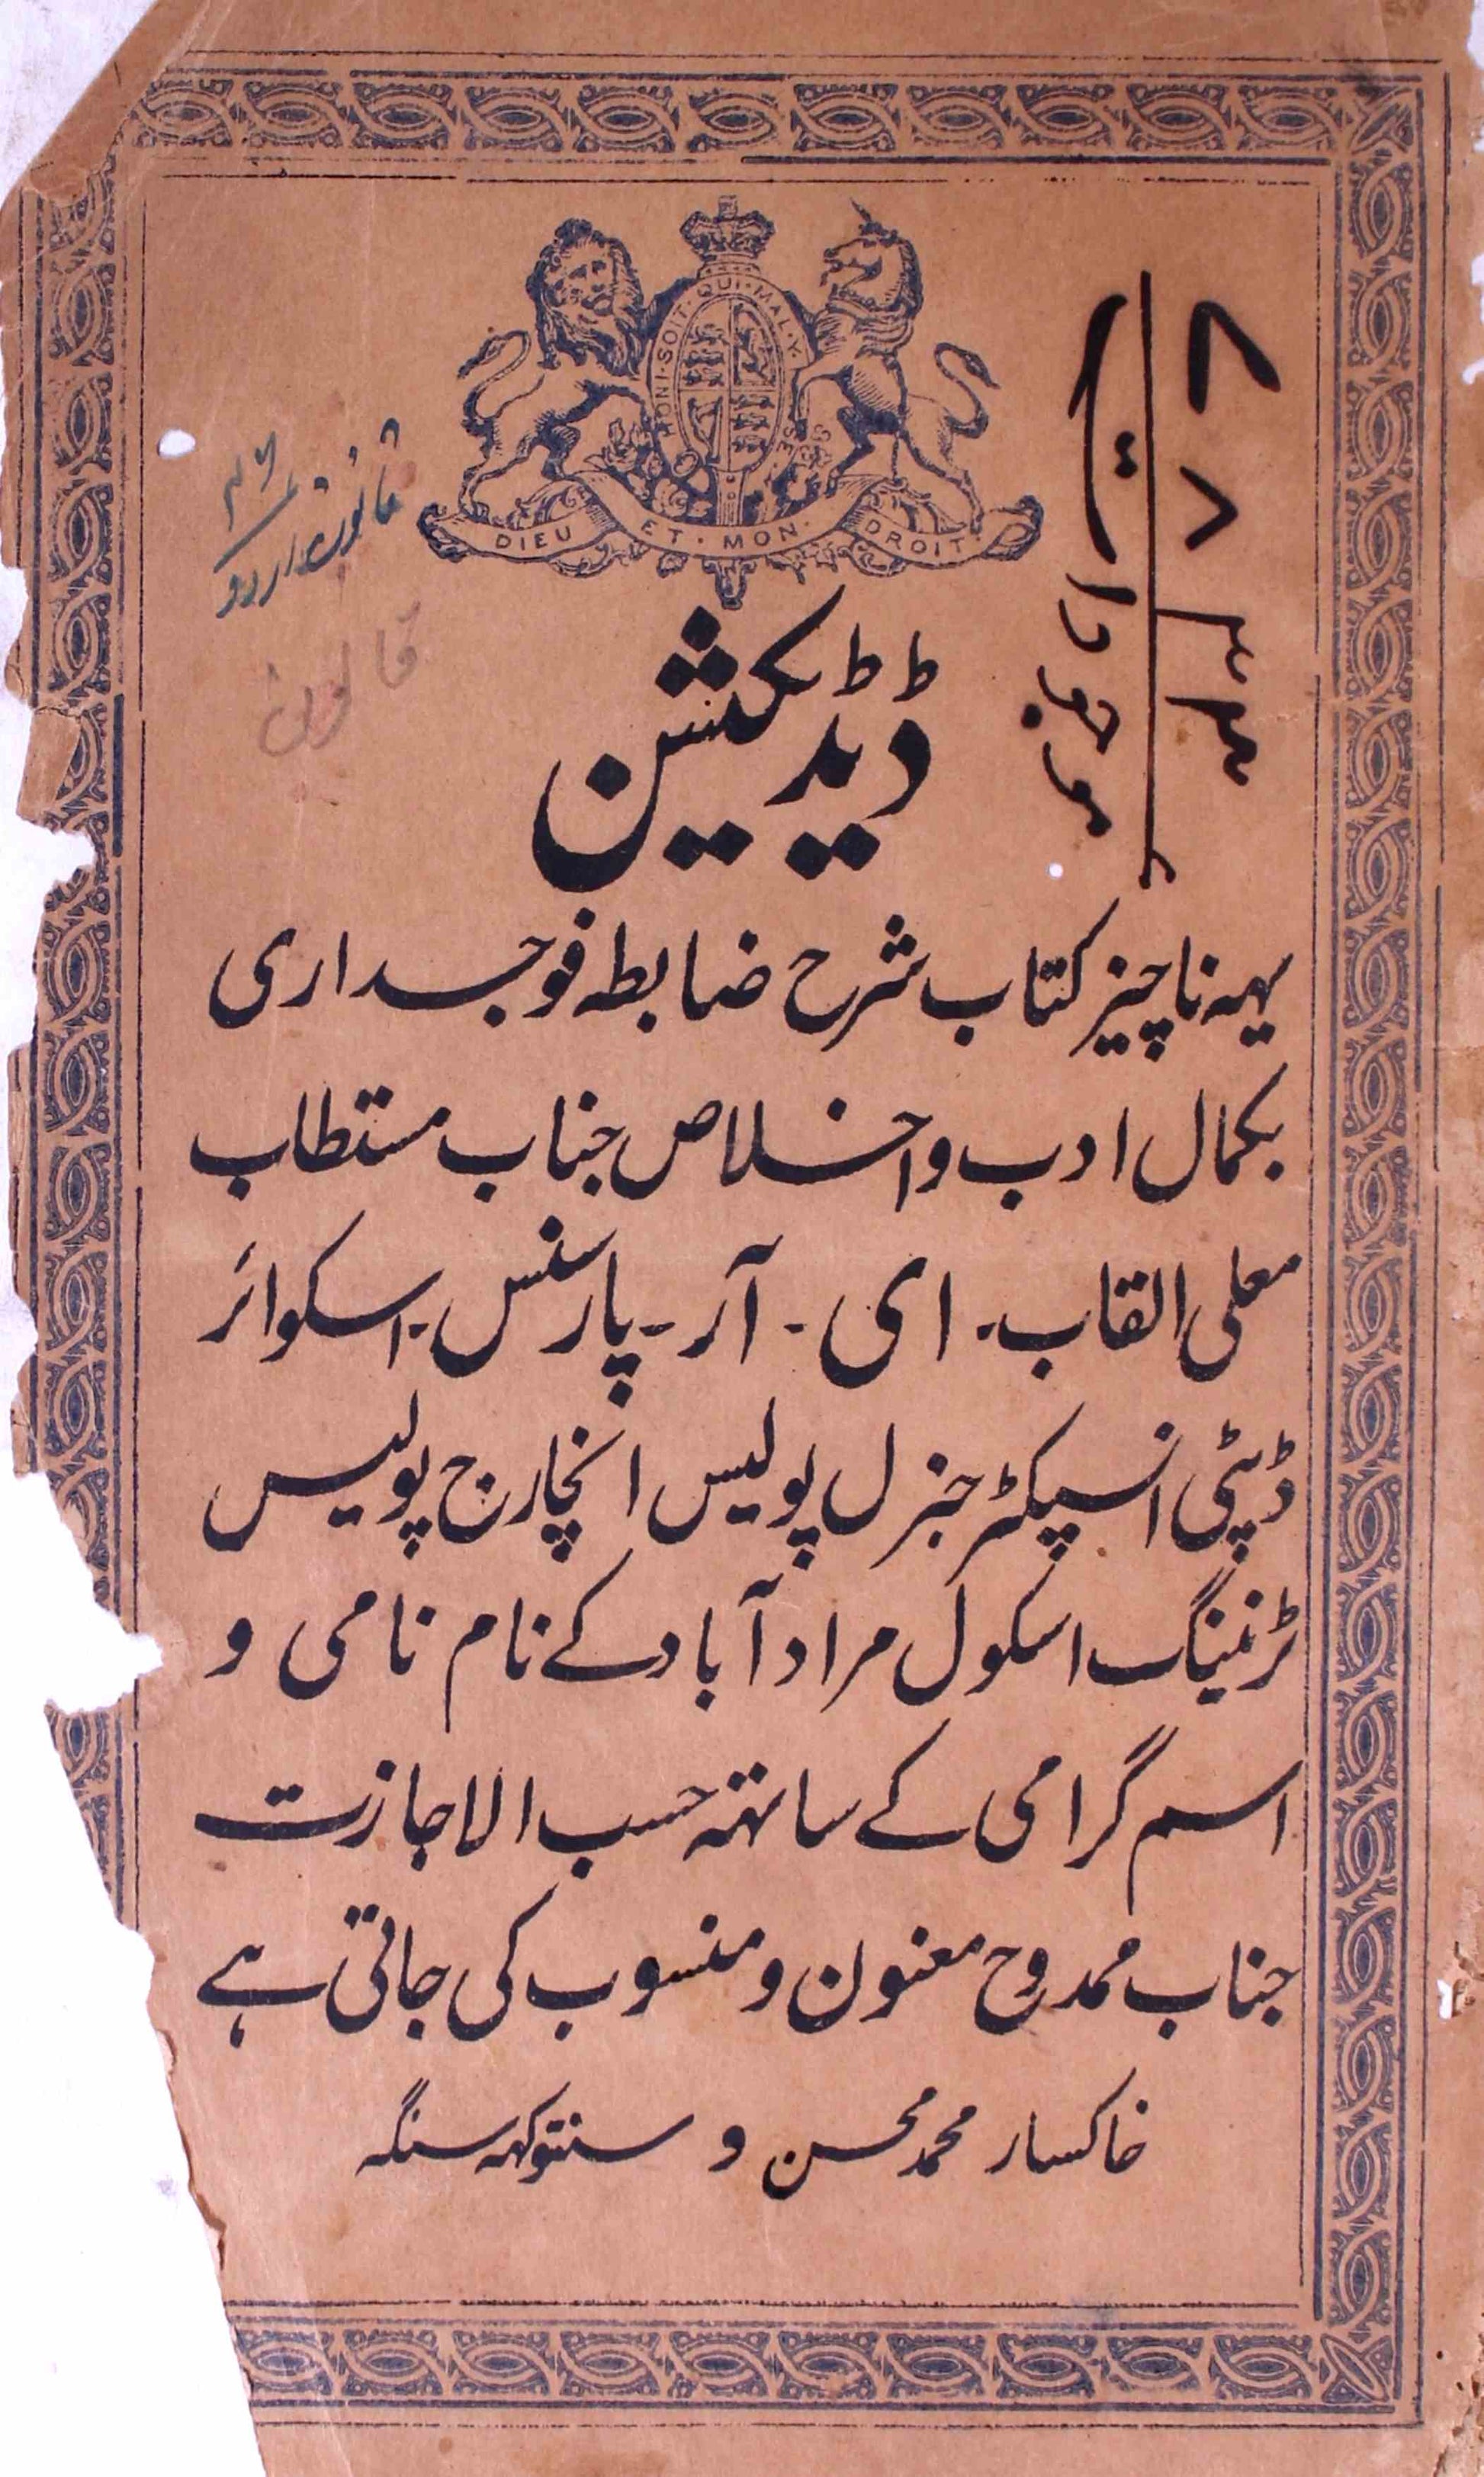 HONI · SOIT · QUI · MAL · Y
DIEU · ET · MON · DROIT ·
۷۸۳۳
موجودات
قانون اردو
قانون
ڈیڈیکیشن
یہہ ناچیز کتاب شرح ضابطہ فوجداری
بکمال ادب و اخلاص جناب مستطاب
معلی القاب۔ ای۔ آر۔ پارسنس۔ اسکوائر
ڈپٹی انسپکٹر جنرل پولیس انچارج پولیس
ٹرنینگ اسکول مراد آباد کے نام نامی و
اسم گرامی کے ساتہہ حسب الاجازت
جناب ممدوح معنون و منسوب کی جاتی ہے
خاکسار محمد محسن و سنتوکہہ سنگہ